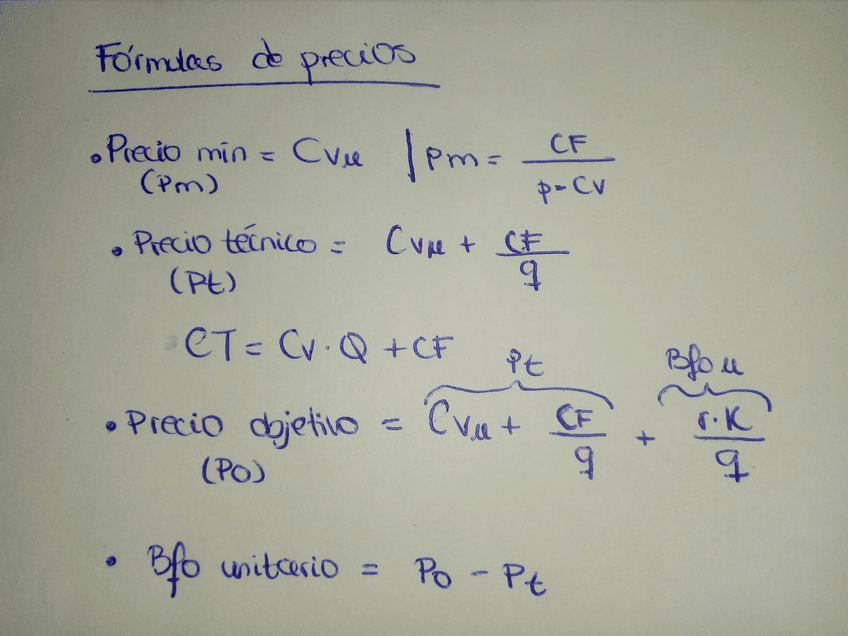 Fórmulas de precios
• Precio min = Cvu | Pm = CF / p-Cv
(Pm)
• Precio técnico = Cvu + CF / q
(Pt)
CT = Cv · Q + CF
Pt Bfo u
• Precio objetivo = Cvu + CF / q + r.K / q
(PO)
• Bfo unitario = Po - Pt